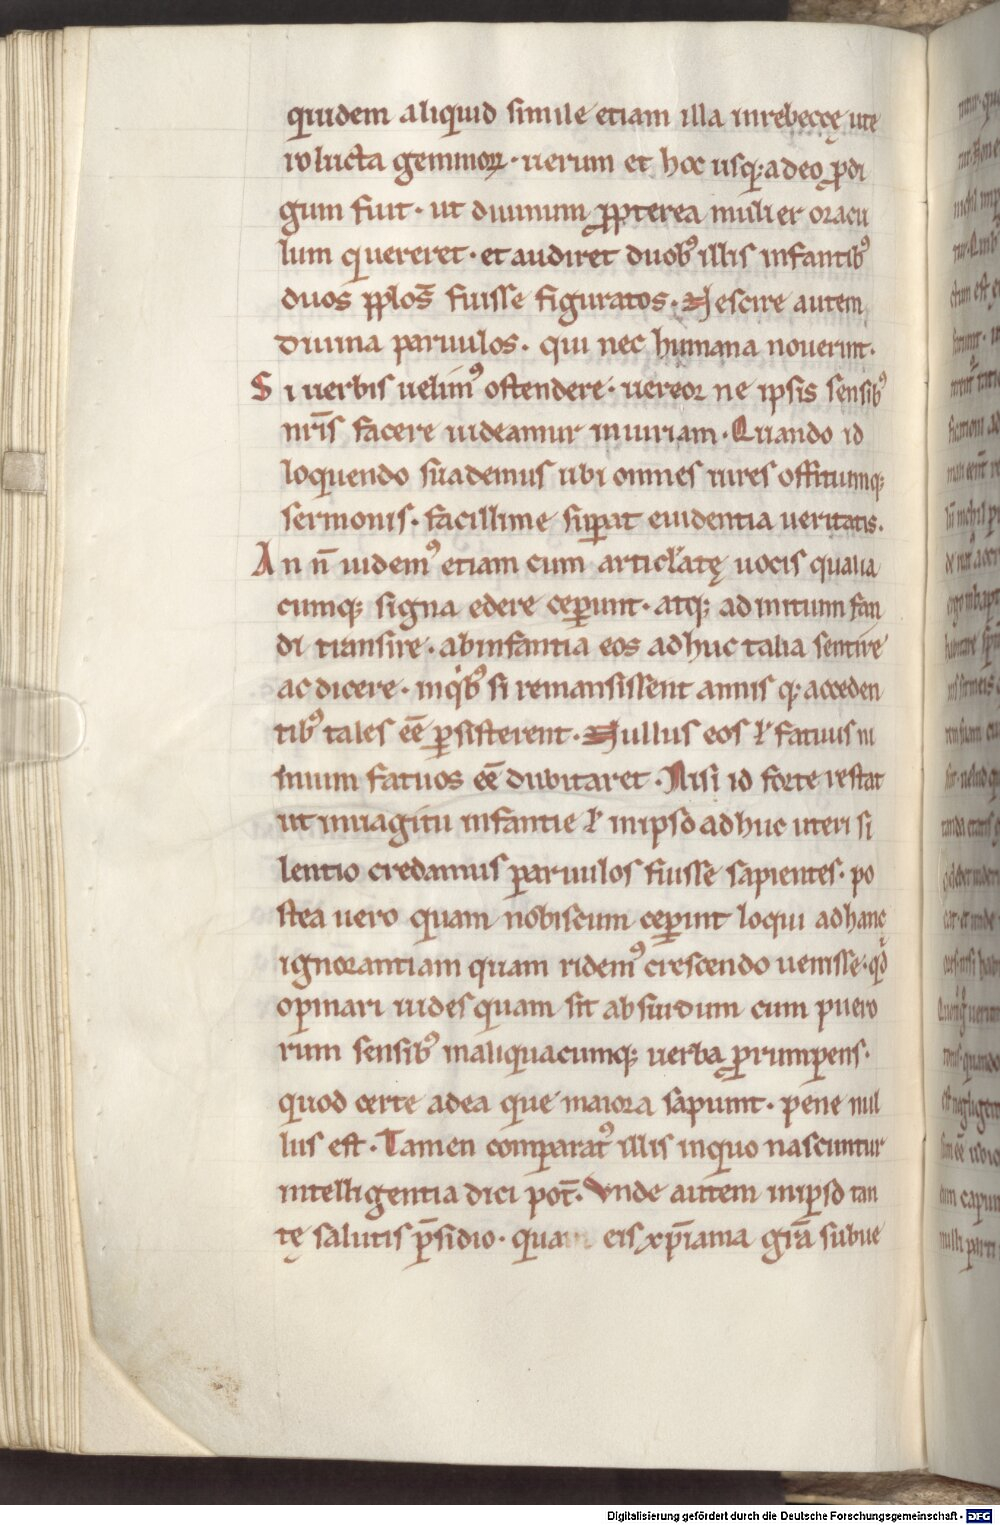 quidem aliquid simile etiam illa inrebeccę ute
ro lucta geminoꝝ · uerum et hoc usq; adeo ꝓdi
gum fuit · ut diuinum ꝓpterea mulier oracu
lum quereret · et audiret duobꝰ illis infantibꝰ
duos pplos̄ fuisse figuratos · Nescire autem
diuina paruulos · qui nec humana nouerint ·
Si uerbis uelimꝰ ostendere · uereor ne ipsis sensibꝰ
nr̄is facere uideamur iniuriam · Quando id
loquendo suademus ubi omnes uires offitiumq;
sermonis · facillime suꝑat euidentia ueritatis ·
An n̄ uidemꝰ etiam cum articl̄atę uocis qualia
cumq; signa edere ceꝑunt · atq; ad initium fan
di transire · abinfantia eos adhuc talia sentire
ac dicere · inqͥbꝰ si remansissent annis q; acceden
tibꝰ tales ēe ꝑsisterent · Nullus eos ł fatuus ni
mium fatuos ēe dubitaret · Nisi id forte restat
ut inuagitu infantie ł inipso adhuc uteri si
lentio credamus ꝑaruulos fuisse sapientes · po
stea uero quam nobiscum ceꝑunt loqui adhanc
ignorantiam quam ridemꝰ crescendo uenisse · qđ
opinari uides quam sit absurdum cum puero
rum sensibꝰ inaliquacumq; uerba ꝓrumpens ·
quod certe adea que maiora sapiunt · pene nul
lus est · Tamen comparatꝰ illis inquo nascuntur
intelligentia dici pot̄ · Vnde autem inipso tan
tę salutis p̄sidio · quam eis xp̄iana gr̄a subue
Digitalisierung gefördert durch die Deutsche Forschungsgemeinschaft - DFG